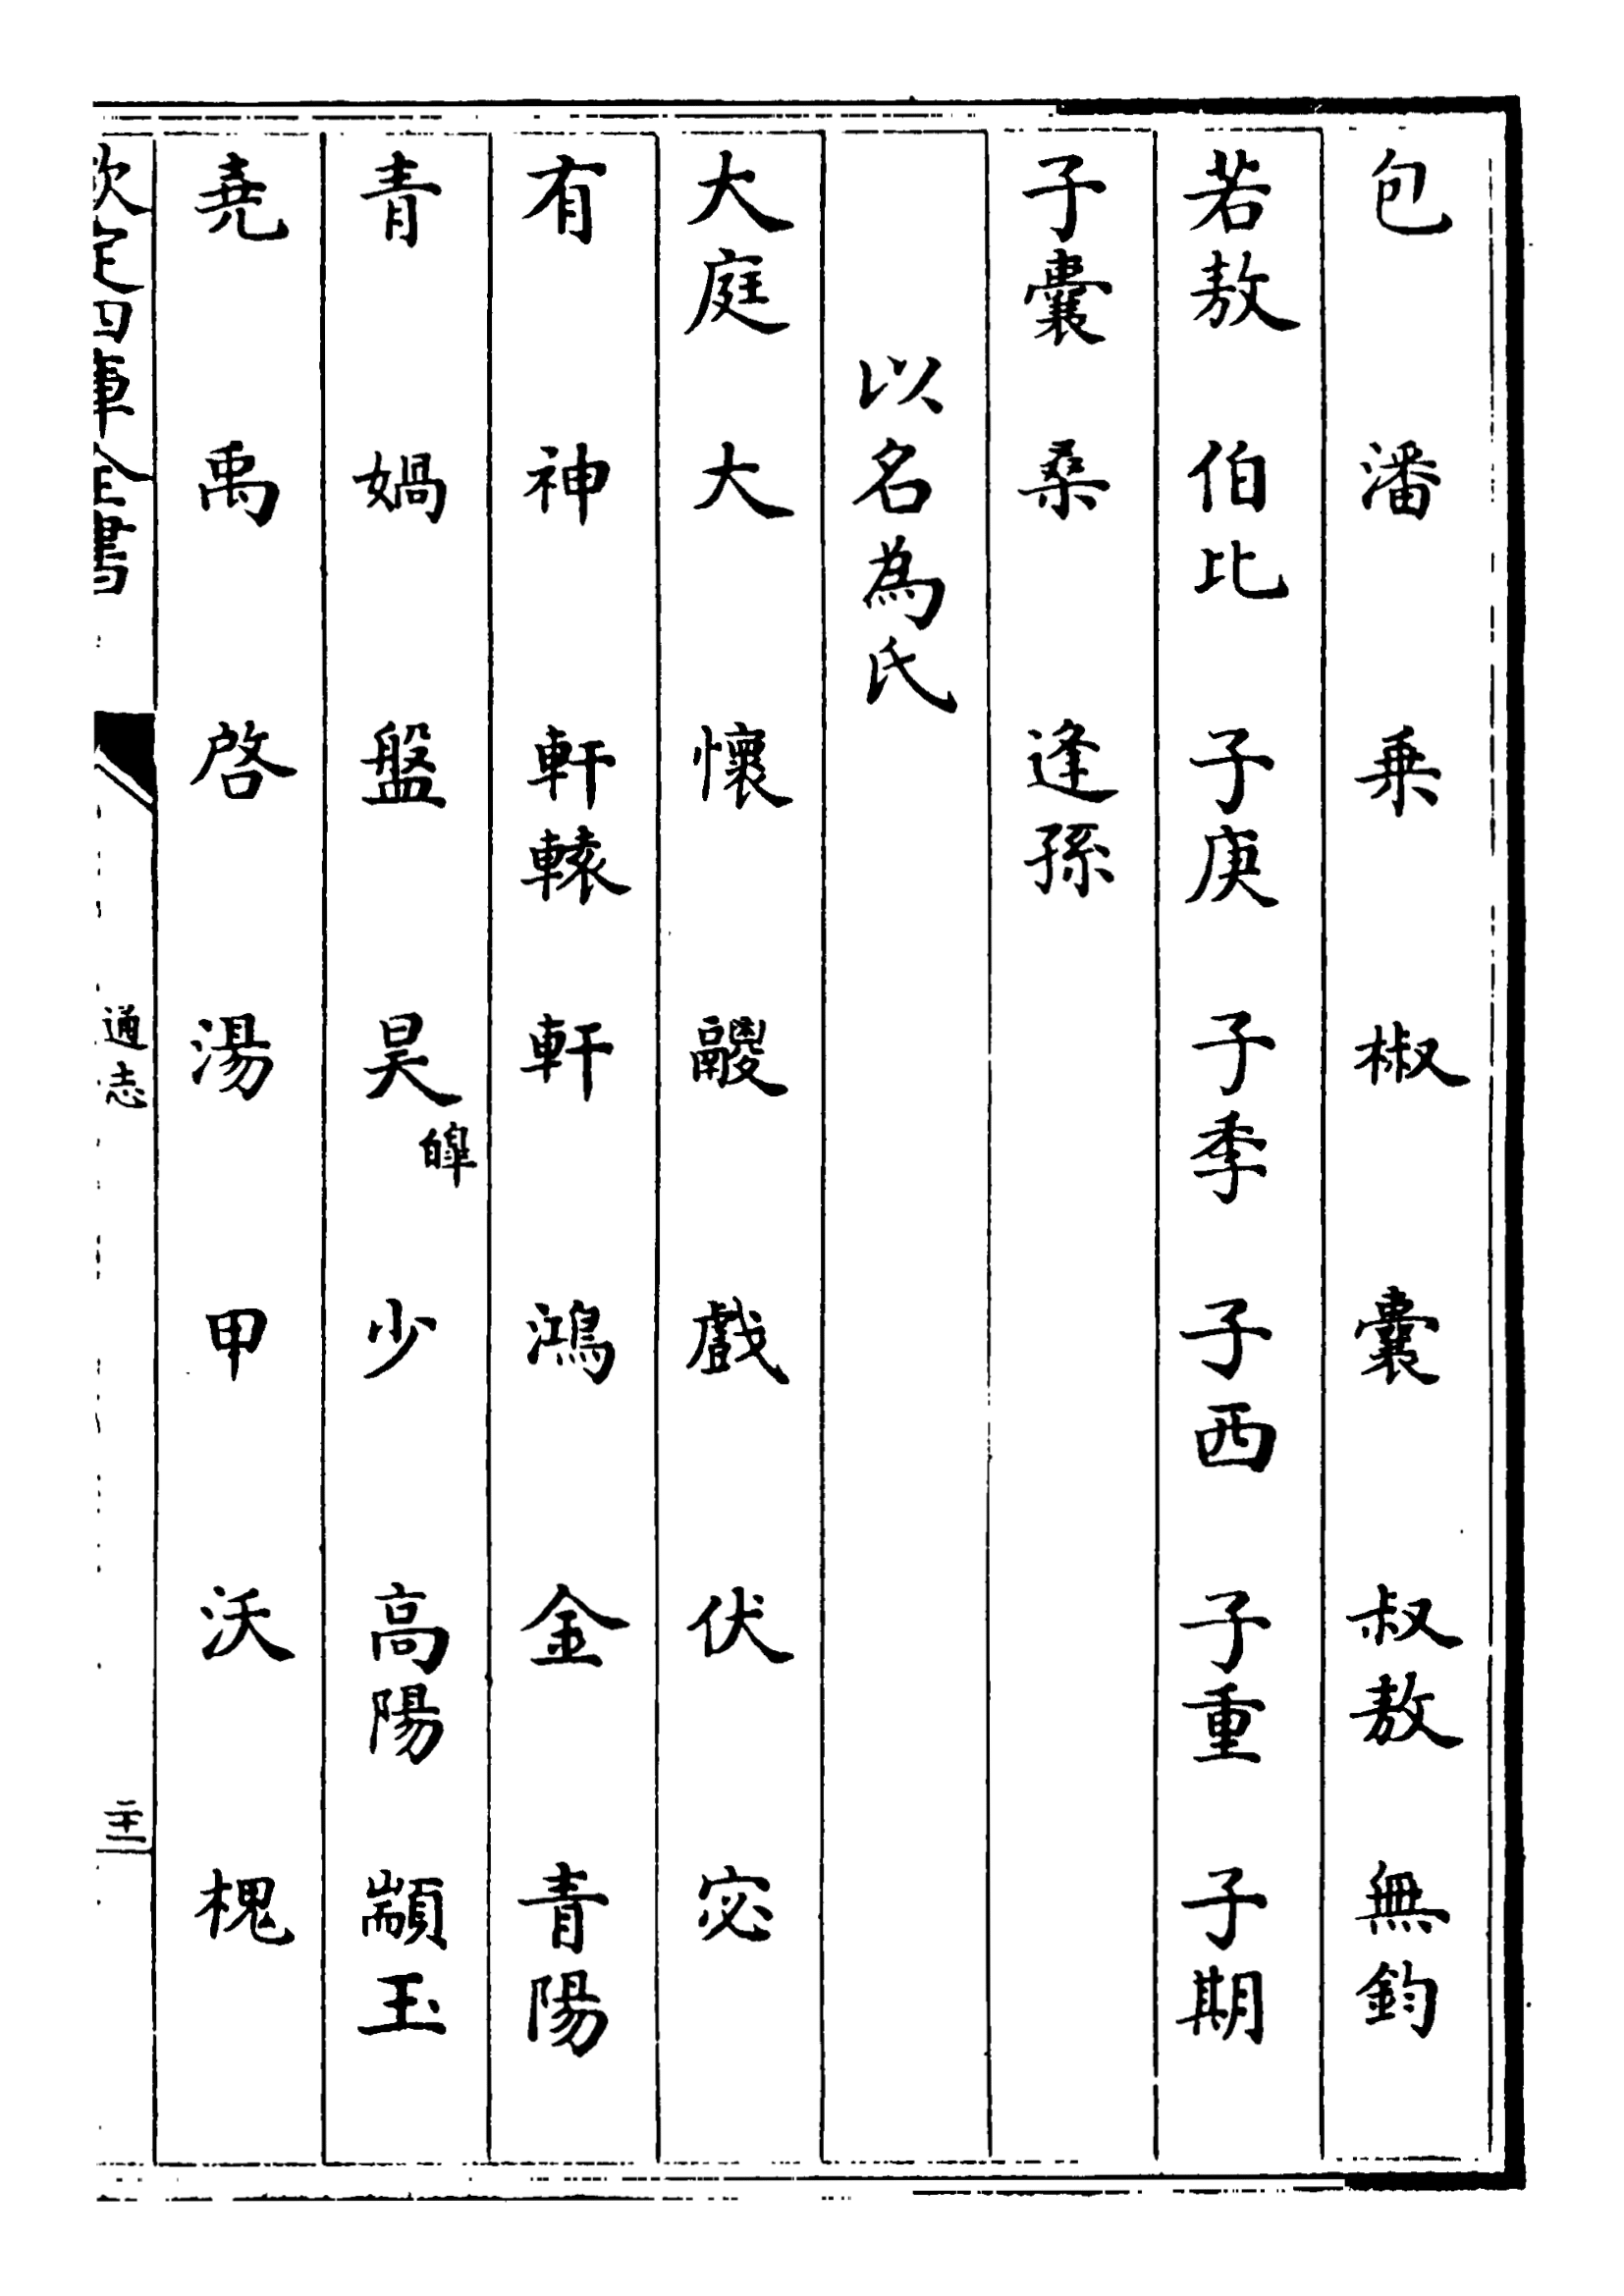 包 潘 乗 椒 囊 叔敖 無鈞
若敖 伯比 子庚 子季 子西 子重 子期
子囊 桑 逢孫
以名為氏
大庭 大 懷 鬷 戲 伏 宓
有 神 軒轅 軒 鴻 金 青陽
青 媧 盤 昊皥 少 高陽 顓玉
堯 禹 啓 湯 甲 沃 槐
欽定四庫全書 通志